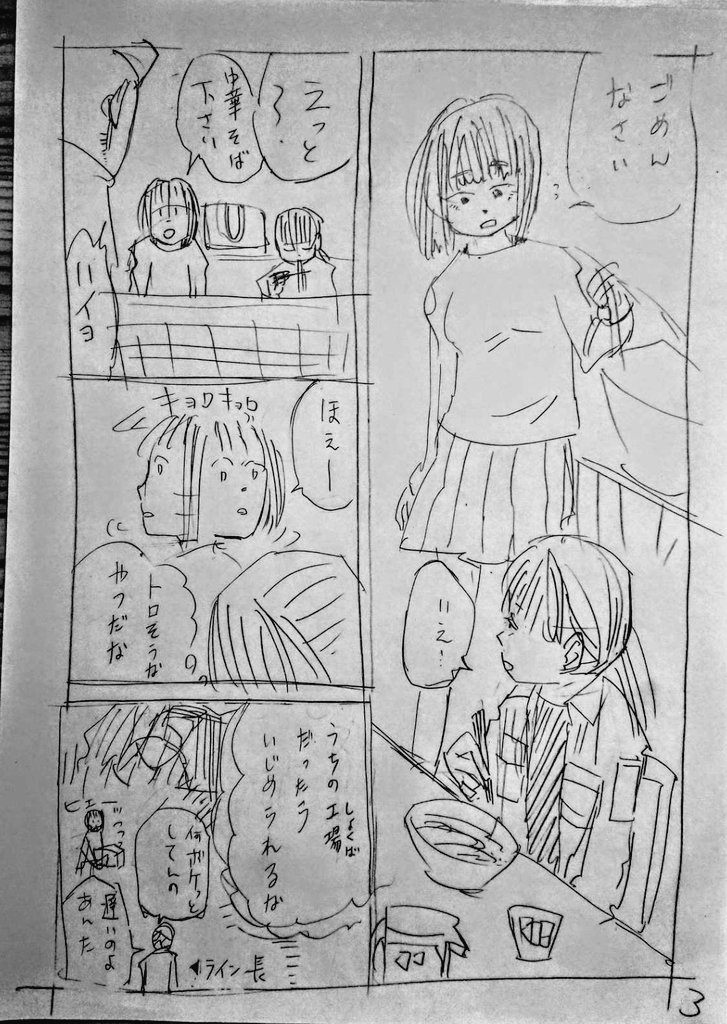 ごめん
なさい
いえ…
えっと
〜
中華そば
下さい
ハイヨ
ほえー
キョロキョロ
トロそうな
やつだな
うちの工場
しょくば
だったら
いじめられるな
何ボケッと
してんの
ヒェー
遅いのよ
あんた
◀ライン長
3